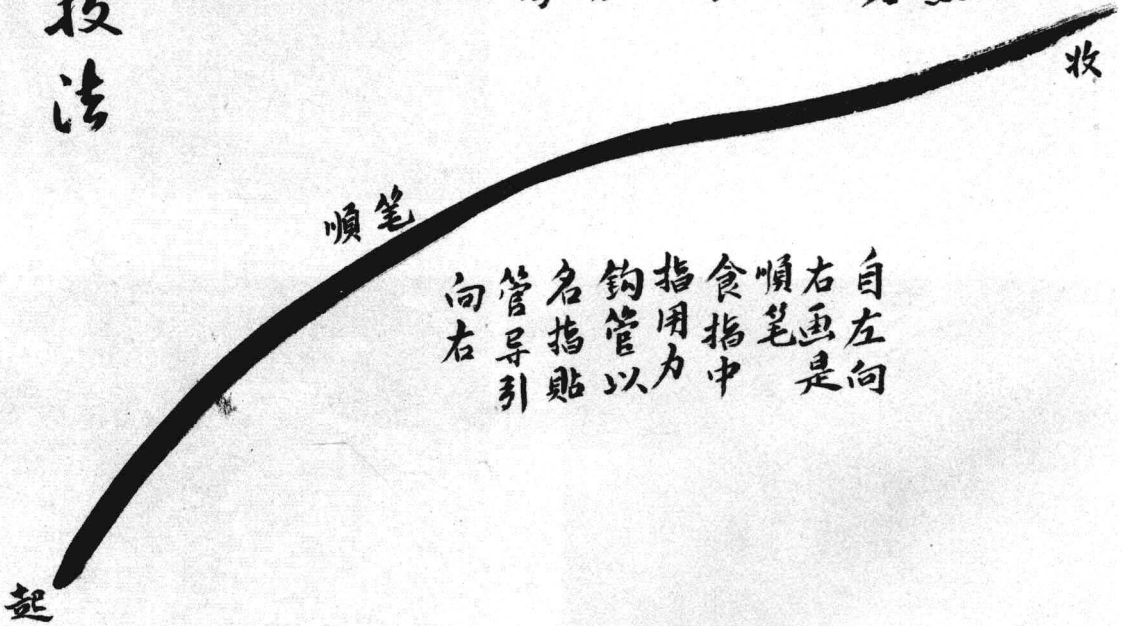 技法
順笔
自左向
右画是
順笔
食指中
指用力
鈎管以
名指貼
管导引
向右
收
起